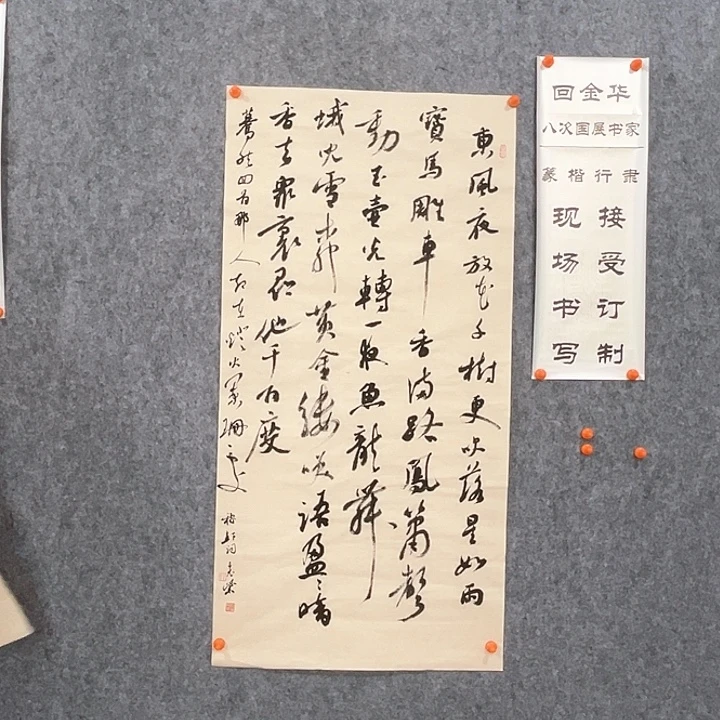 東風夜放花千樹更吹落星如雨
寶馬雕車香滿路鳳簫聲
動玉壺光轉一夜魚龍舞
蛾儿雪柳黄金縷笑語盈〻暗
香去衆裏尋他千百度
驀然回首那人却在燈火闌珊處
回金华
八次国展书家
篆楷行隶
接受订制
现场书写